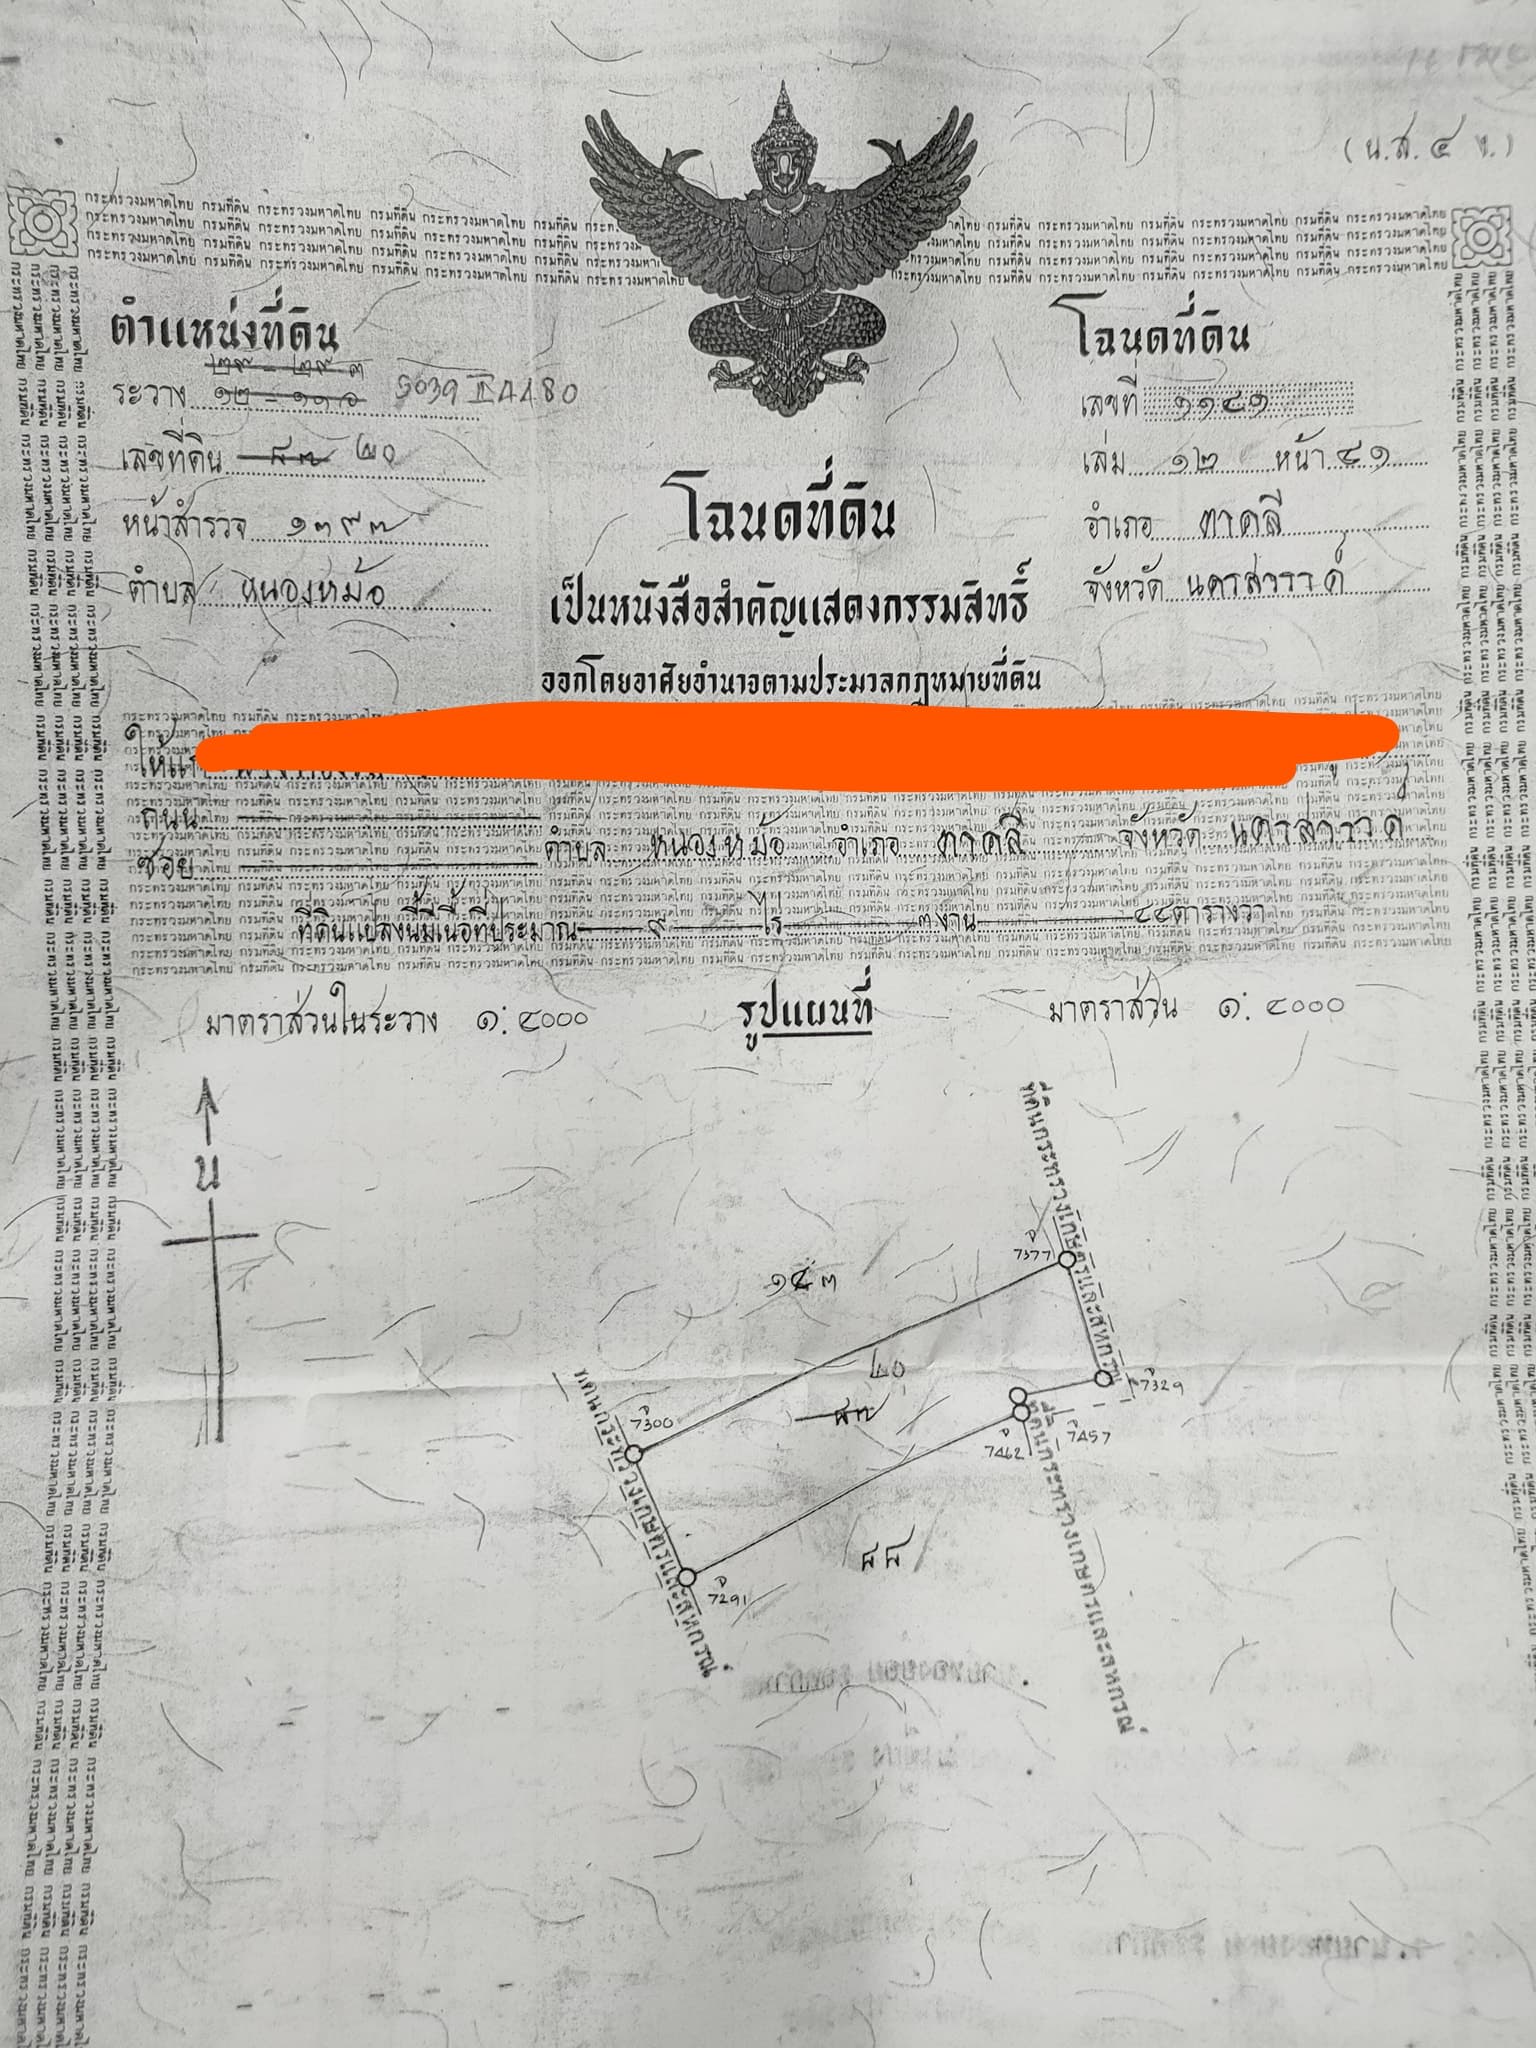 (น.ส. ๔ จ.)
ตำแหน่งที่ดิน
ระวาง ๑๒ - ๑๑๐ 5039 II 4480
เลขที่ดิน ๘๗ ๒๐
หน้าสำรวจ ๑๓๙๗
ตำบล หนองหม้อ
โฉนดที่ดิน
เลขที่ ๑๑๔๑
เล่ม ๑๒ หน้า ๔๑
อำเภอ ตาคลี
จังหวัด นครสวรรค์
โฉนดที่ดิน
เป็นหนังสือสำคัญแสดงกรรมสิทธิ์
ออกโดยอาศัยอำนาจตามประมวลกฎหมายที่ดิน
ถนน
ซอย ตำบล หนองหม้อ อำเภอ ตาคลี จังหวัด นครสวรรค์
ที่ดินแปลงนี้มีเนื้อที่ประมาณ ๙ ไร่ ๓ งาน ๔๔ ตารางวา
มาตราส่วนในระวาง ๑: ๔๐๐๐ รูปแผนที่ มาตราส่วน ๑: ๔๐๐๐
น
ที่ดินกระทรวงเกษตรและสหกรณ์
7377
๑๔๓
๒๐
7329
๘๗
7300
7457
7462
ที่ดินกระทรวงเกษตรและสหกรณ์
ที่ดินกระทรวงเกษตรและสหกรณ์
๘๘
7291